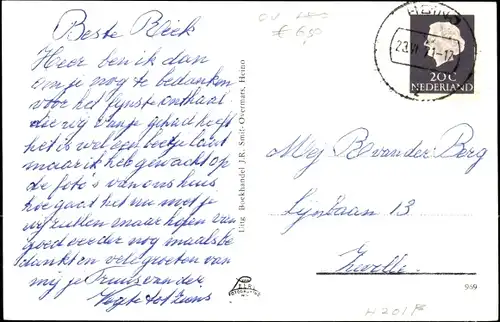 Beste Riek
Hier ben ik dan
om je nog te bedanken
voor het fijnst onthaal
die wij van je gehad heeft
het is wel een beetje laat
maar ik heb gewacht op
de foto's van ons huis
hoe gaat het nu met je
wij zullen maar hopen van
goed verder nog maals be
dankt en vele groeten van
mij je Truus van der
tot ziens
Uitg. Boekhandel J.R. Smit-Overmars, Heino
HEINO
20 C
NEDERLAND
Mej R van der Berg
Lijnbaan 13
Zwolle
969
H201F